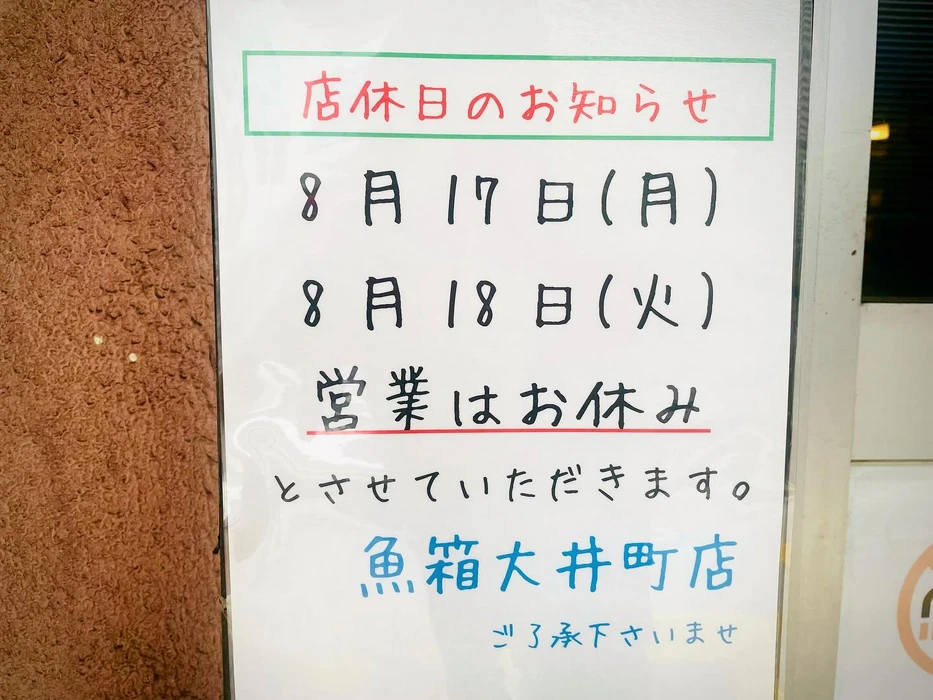 店休日のお知らせ
8月17日(月)
8月18日(火)
営業はお休み
とさせていただきます。
魚箱大井町店
ご了承下さいませ